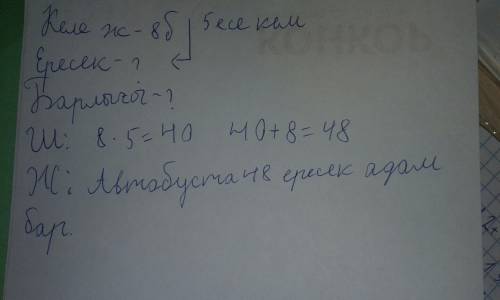 Келе ж - 8б 5 есе кем
Ересек - ?
Барлығы - ?
Ш: 8 · 5 = 40 40 + 8 = 48
Ж: Автобуста 48 ересек адам
бар.